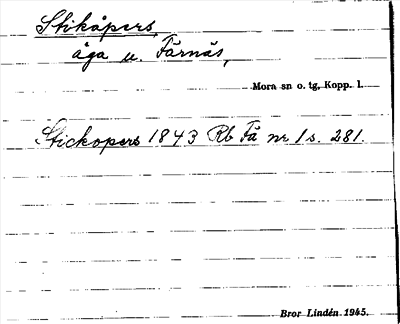 Stikåpers
äga u. Färnäs,
Mora sn o. tg, Kopp. l.
Stickopers 1843 Rb Få nr 1 s. 281.
Bror Lindén 1945.